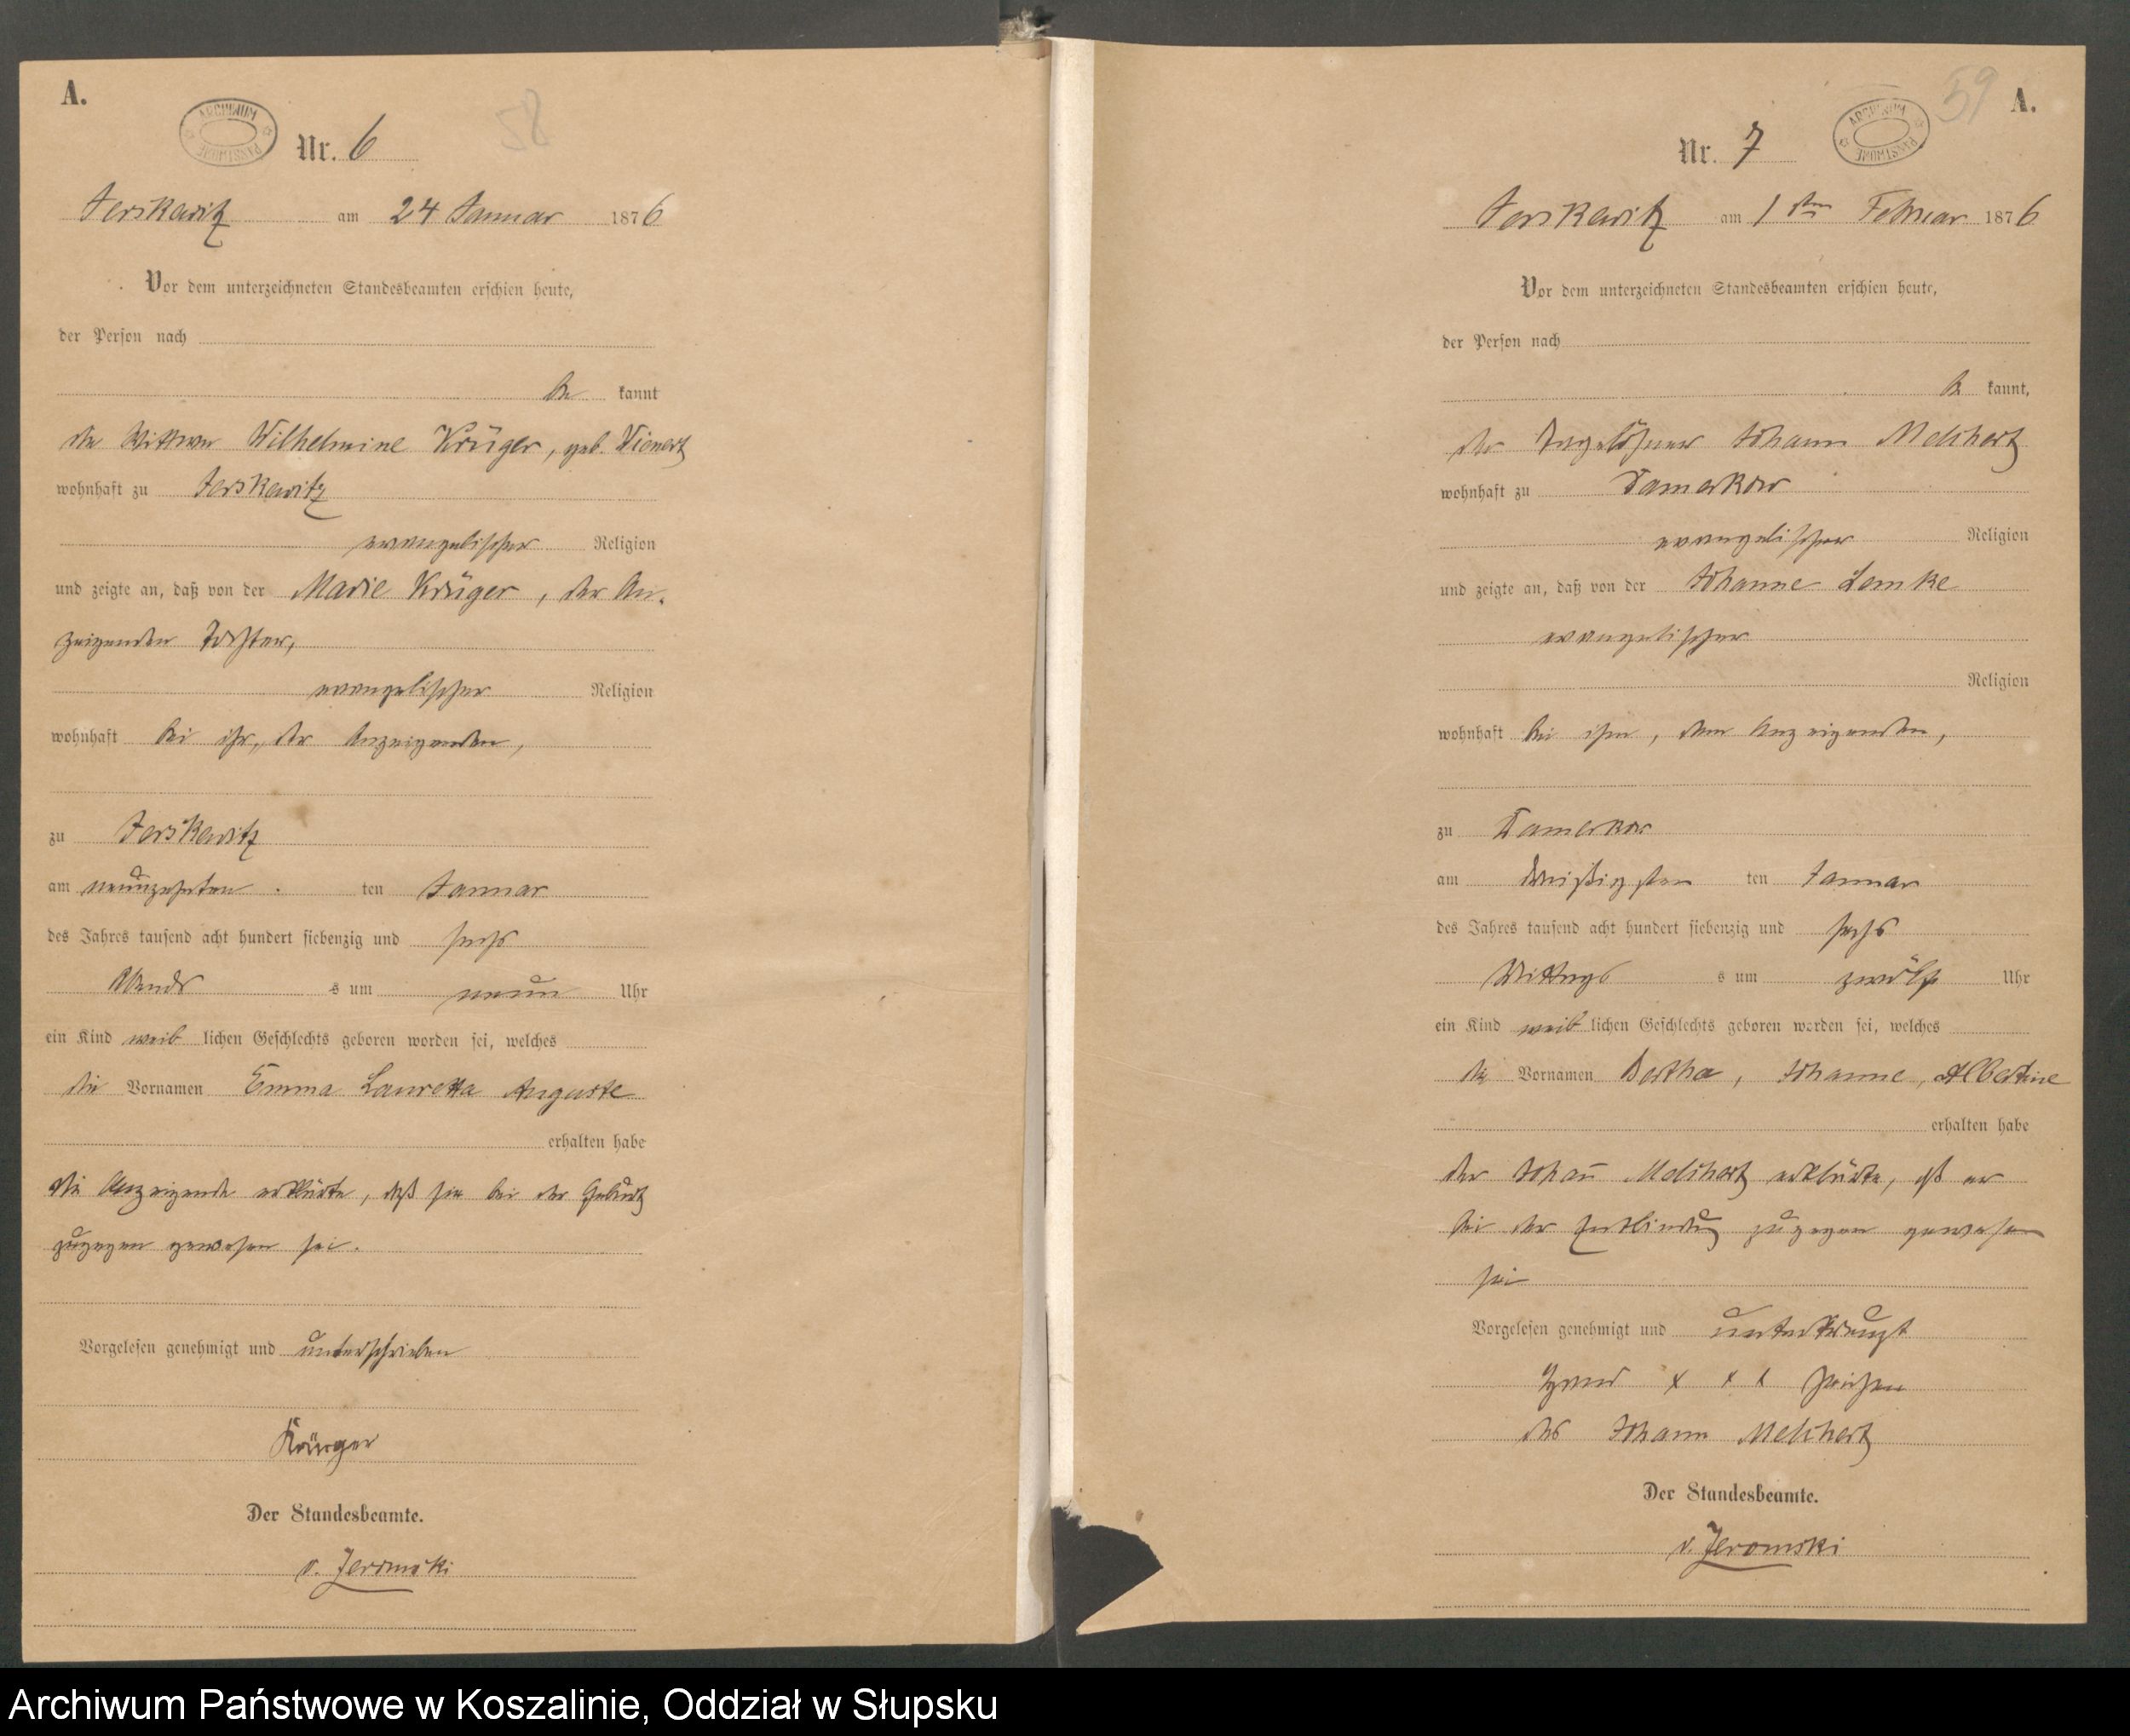 A.
ARCHIWUM PAŃSTWOWE
58
Nr. 6
Jerskewitz am 24 Januar 1876
Vor dem unterzeichneten Standesbeamten erschien heute,
der Person nach
be kannt
die Wittwe Wilhelmine Krüger, geb. Vienertz
wohnhaft zu Jerskewitz
evangelischer Religion
und zeigte an, daß von der Marie Krüger, der An-
zeigenden Tochter,
evangelischer Religion
wohnhaft bei ihr, der Anzeigenden,
zu Jerskewitz
am neunzehnten ten Januar
des Jahres tausend acht hundert siebenzig und sechs
Abends s um neun Uhr
ein Kind weib lichen Geschlechts geboren worden sei, welches
die Vornamen Emma Lauretta Auguste
erhalten habe
die Anzeigende erklärte, daß sie bei der Geburt
zugegen gewesen sei.
Vorgelesen genehmigt und unterschrieben
Krüger
Der Standesbeamte.
v. Jeromski
59
A.
ARCHIWUM PAŃSTWOWE
Nr. 7
Jerskewitz am 1ten Februar 1876
Vor dem unterzeichneten Standesbeamten erschien heute,
der Person nach
be kannt,
der Tagelöhner Johann Melchert
wohnhaft zu Damerkow
evangelischer Religion
und zeigte an, daß von der Johanne Lemke
evangelischer
Religion
wohnhaft bei ihm, dem Anzeigenden,
zu Damerkow
am dreißigsten ten Januar
des Jahres tausend acht hundert siebenzig und sechs
Mittags s um zwölf Uhr
ein Kind weib lichen Geschlechts geboren worden sei, welches
die Vornamen Bertha, Johanne, Albertine
erhalten habe
der Johann Melchert erklärte, daß er
bei der Entbindung zugegen gewesen
sei
Vorgelesen genehmigt und unterkreuzt
x x x Zeichen
des Johann Melchert
Der Standesbeamte.
v. Jeromski
Archiwum Państwowe w Koszalinie, Oddział w Słupsku